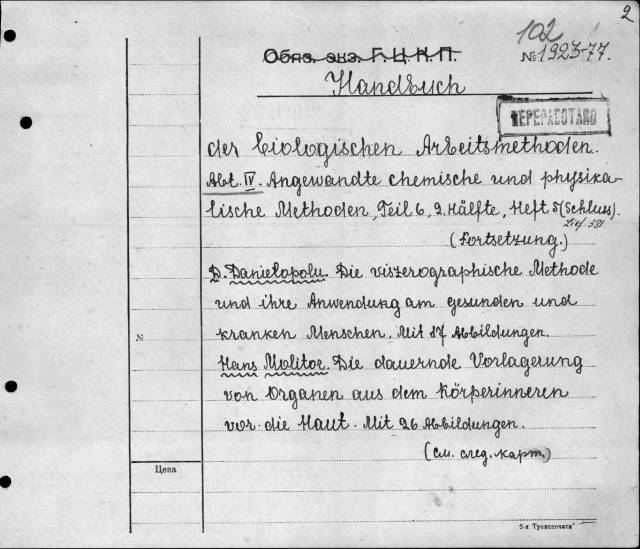 2
102
Обяз. экз. Г.Ц.К.П.
№ 1923-77.
Handbuch
ПЕРЕРАБОТАНО
der biologischen Arbeitsmethoden.
Abt. IV. Angewandte chemische und physika-
lische Methoden, Teil 6, 2. Hälfte, Heft 5 (Schluss).
Lief. 381
(Fortsetzung.)
D. Danielopolu. Die viszerographische Methode
und ihre Anwendung am gesunden und
№ kranken Menschen. Mit 87 Abbildungen.
Hans Molitor. Die dauernde Vorlagerung
von Organen aus dem Körperinneren
vor die Haut. Mit 26 Abbildungen.
(см. след. карт.)
Цена
5-я Транспечати"